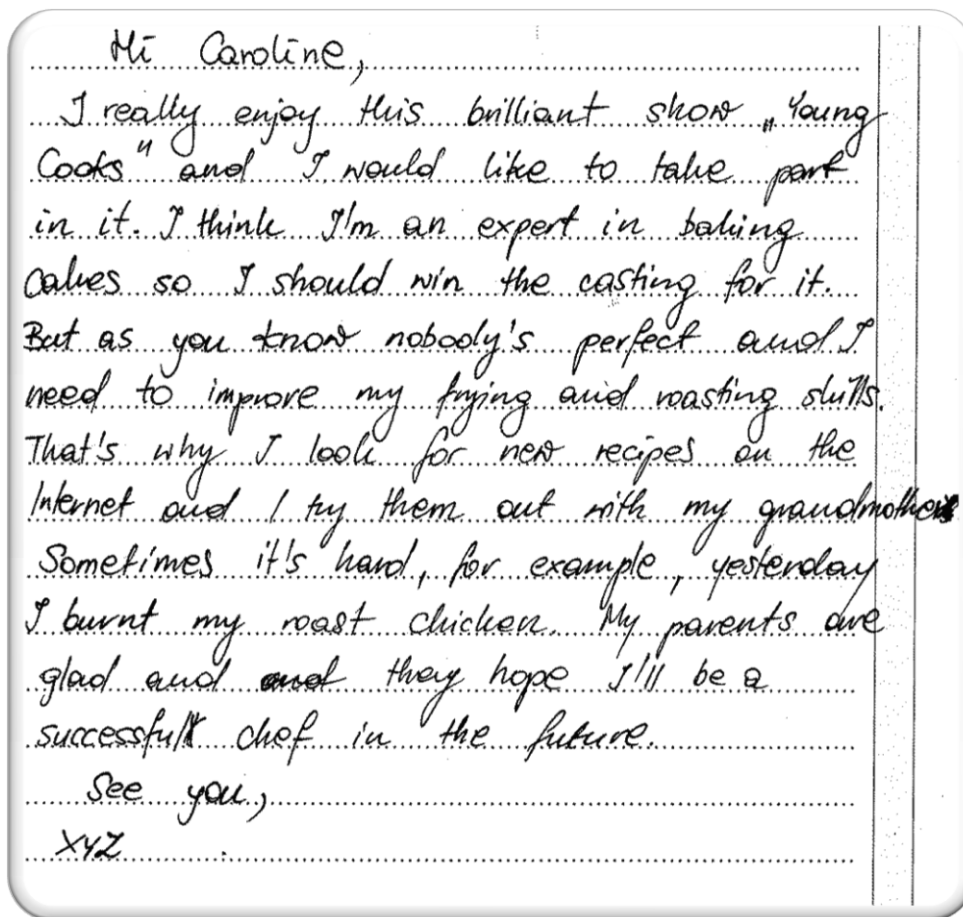 Hi Caroline,
I really enjoy this brilliant show „Young
Cooks" and I would like to take part
in it. I think I'm an expert in baking
cakes so I should win the casting for it.
But as you know nobody's perfect and I
need to improve my frying and roasting skills.
That's why I look for new recipes on the
Internet and I try them out with my grandmother.
Sometimes it's hard, for example, yesterday
I burnt my roast chicken. My parents are
glad and they hope I'll be a
successful chef in the future.
See you,
XYZ